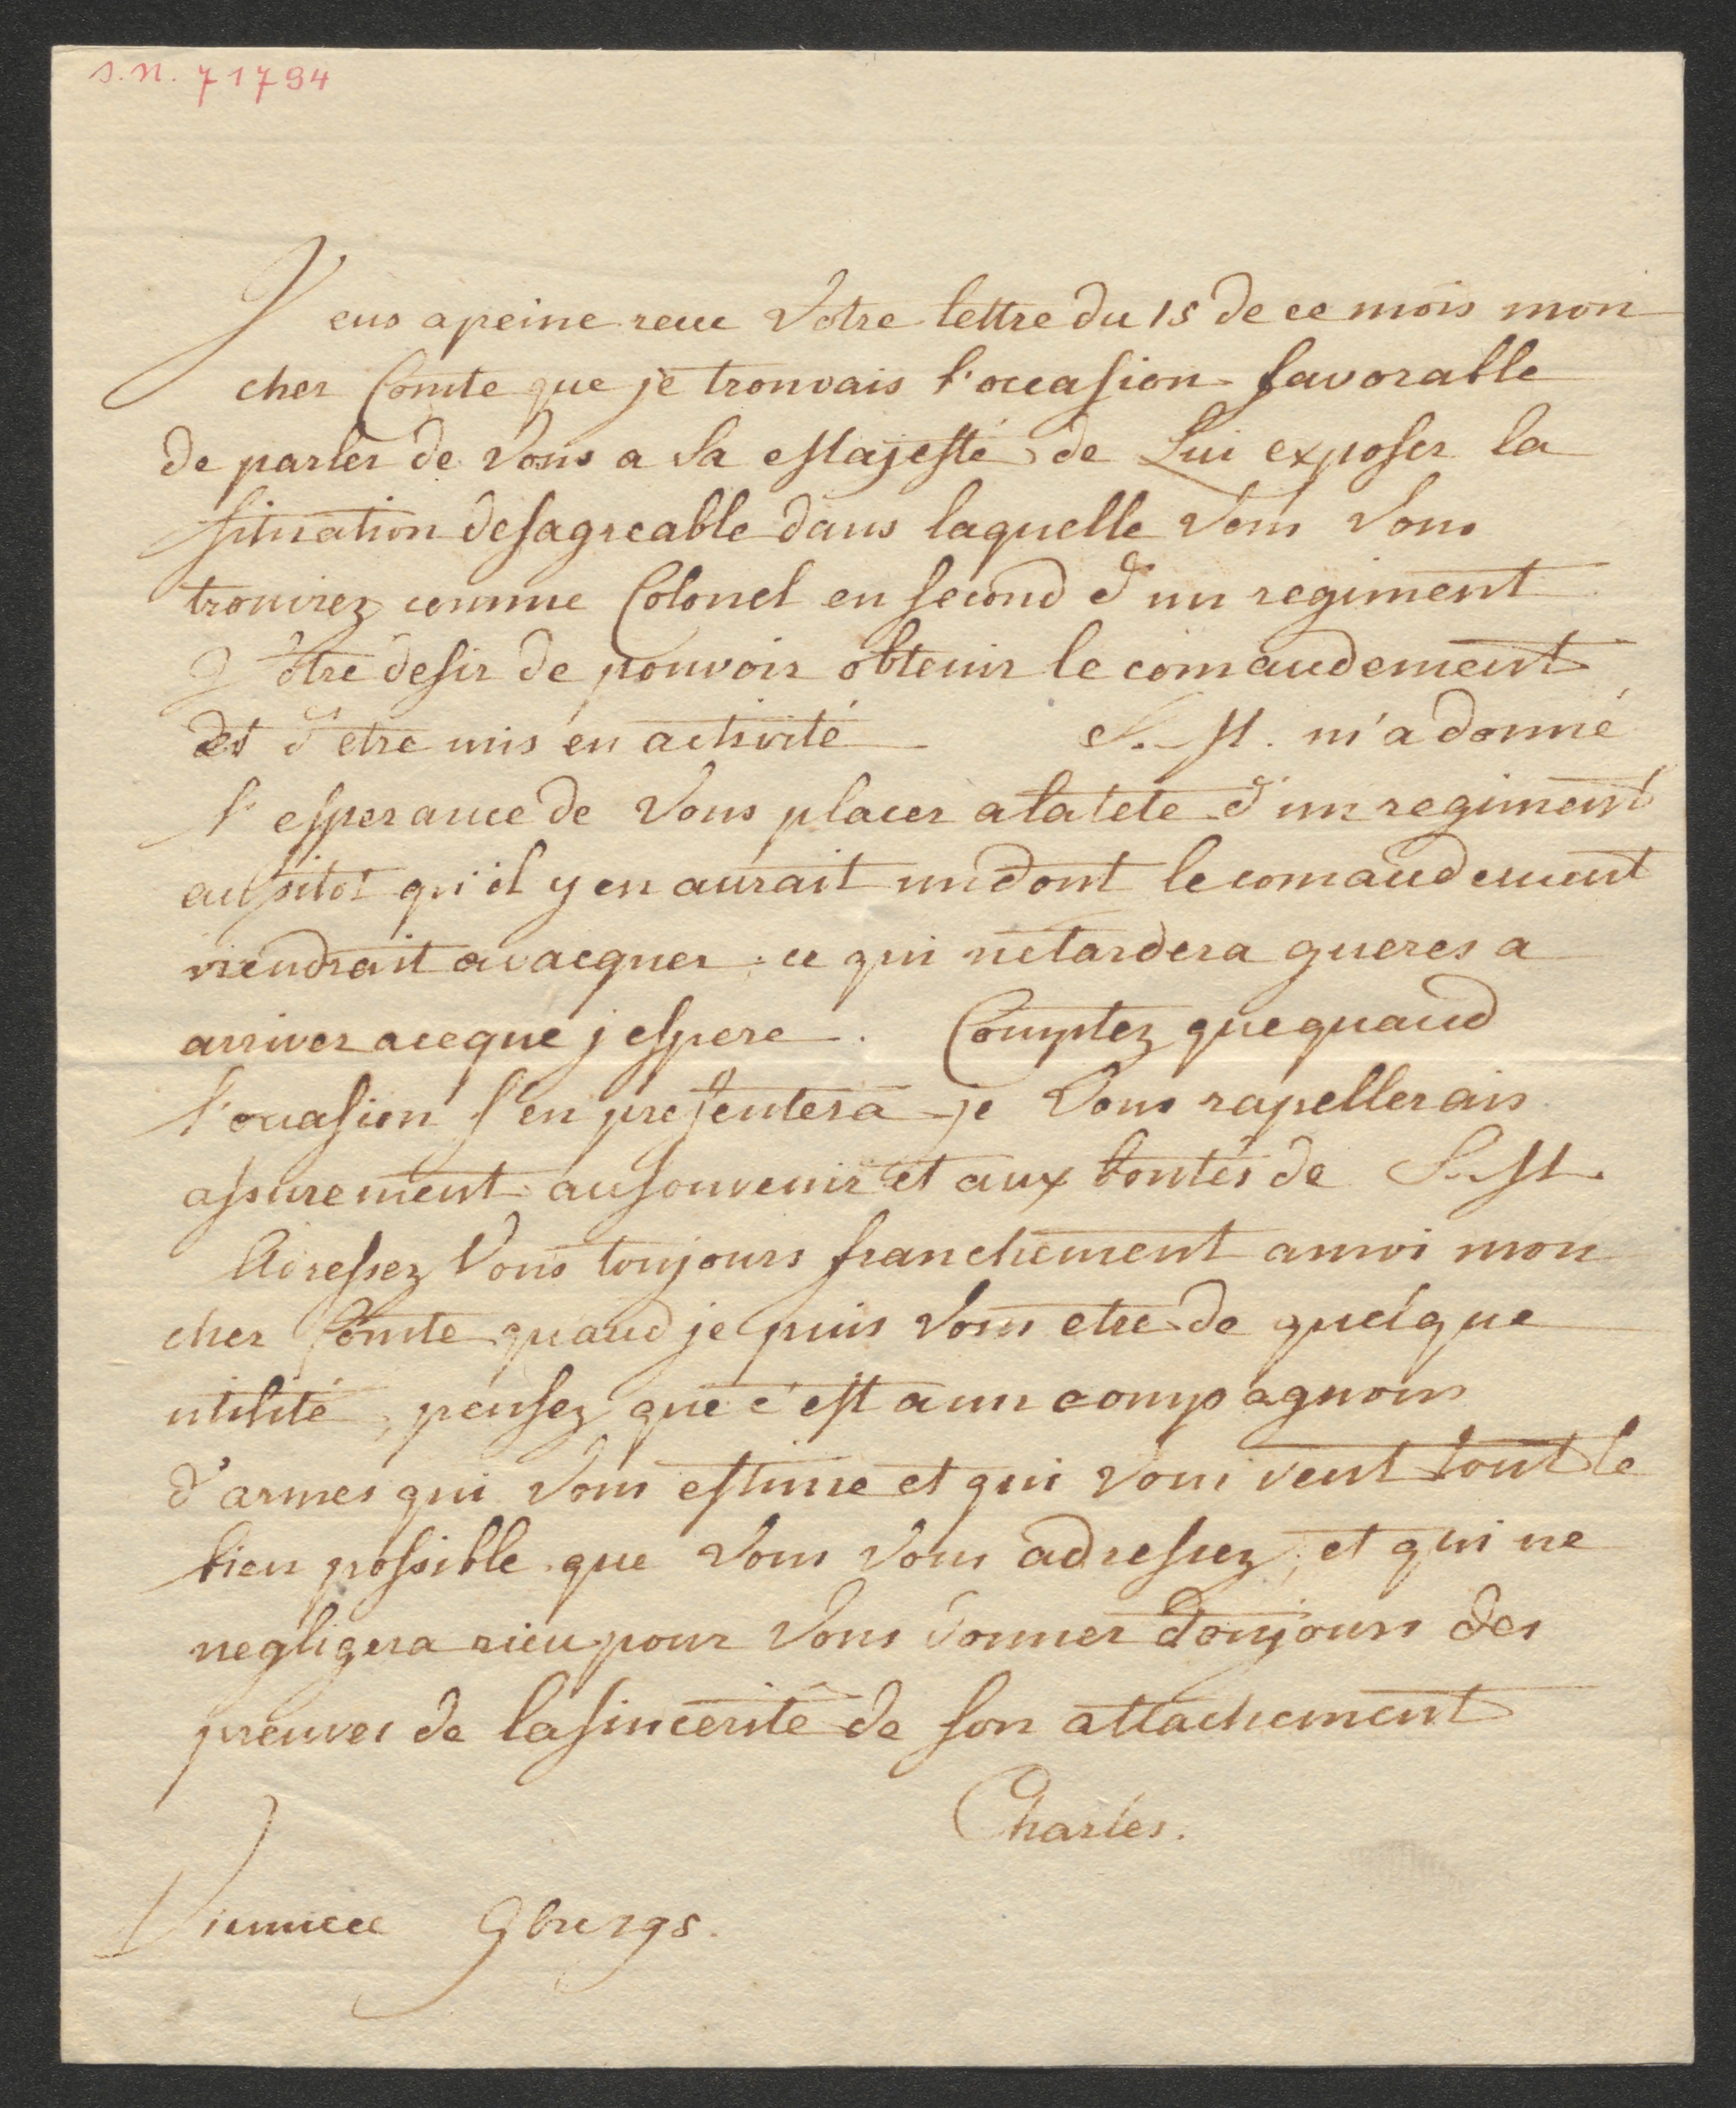 s.n. 71794
J'eus apeine recue Votre lettre du 15 de ce mois mon
cher Comte que je trouvais l'occasion favorable
de parler de Vous a Sa Majesté de Lui exposer la
situation desagreable dans laquelle Vous Vous
trouviez comme Colonel en second d'un regiment
Votre desir de pouvoir obtenir le comandement
et d'etre mis en activité S. M. m'a donné
l'esperance de Vous placer a la tete d'un regiment
aussitot qu'il y en aurait un dont le comandement
viendrait a vacquer. ce qui ne tardera gueres a
arriver a ce que j espere. Comptez que quand
l'occasion s'en presentera je Vous rapellerais
assurement au souvenir et aux bontés de S. M.
Adressez Vous toujours franchement a moi mon
cher Comte quand je puis Vous etre de quelque
utilité, pensez que c'est a un compagnon
d'armes qui Vous estime et qui Vous veut tout le
bien possible que Vous Vous adressez, et qui ne
negligera rien pour Vous donner toujours des
preuves de la sincerité de son attachement
Charles.
Vienne ce